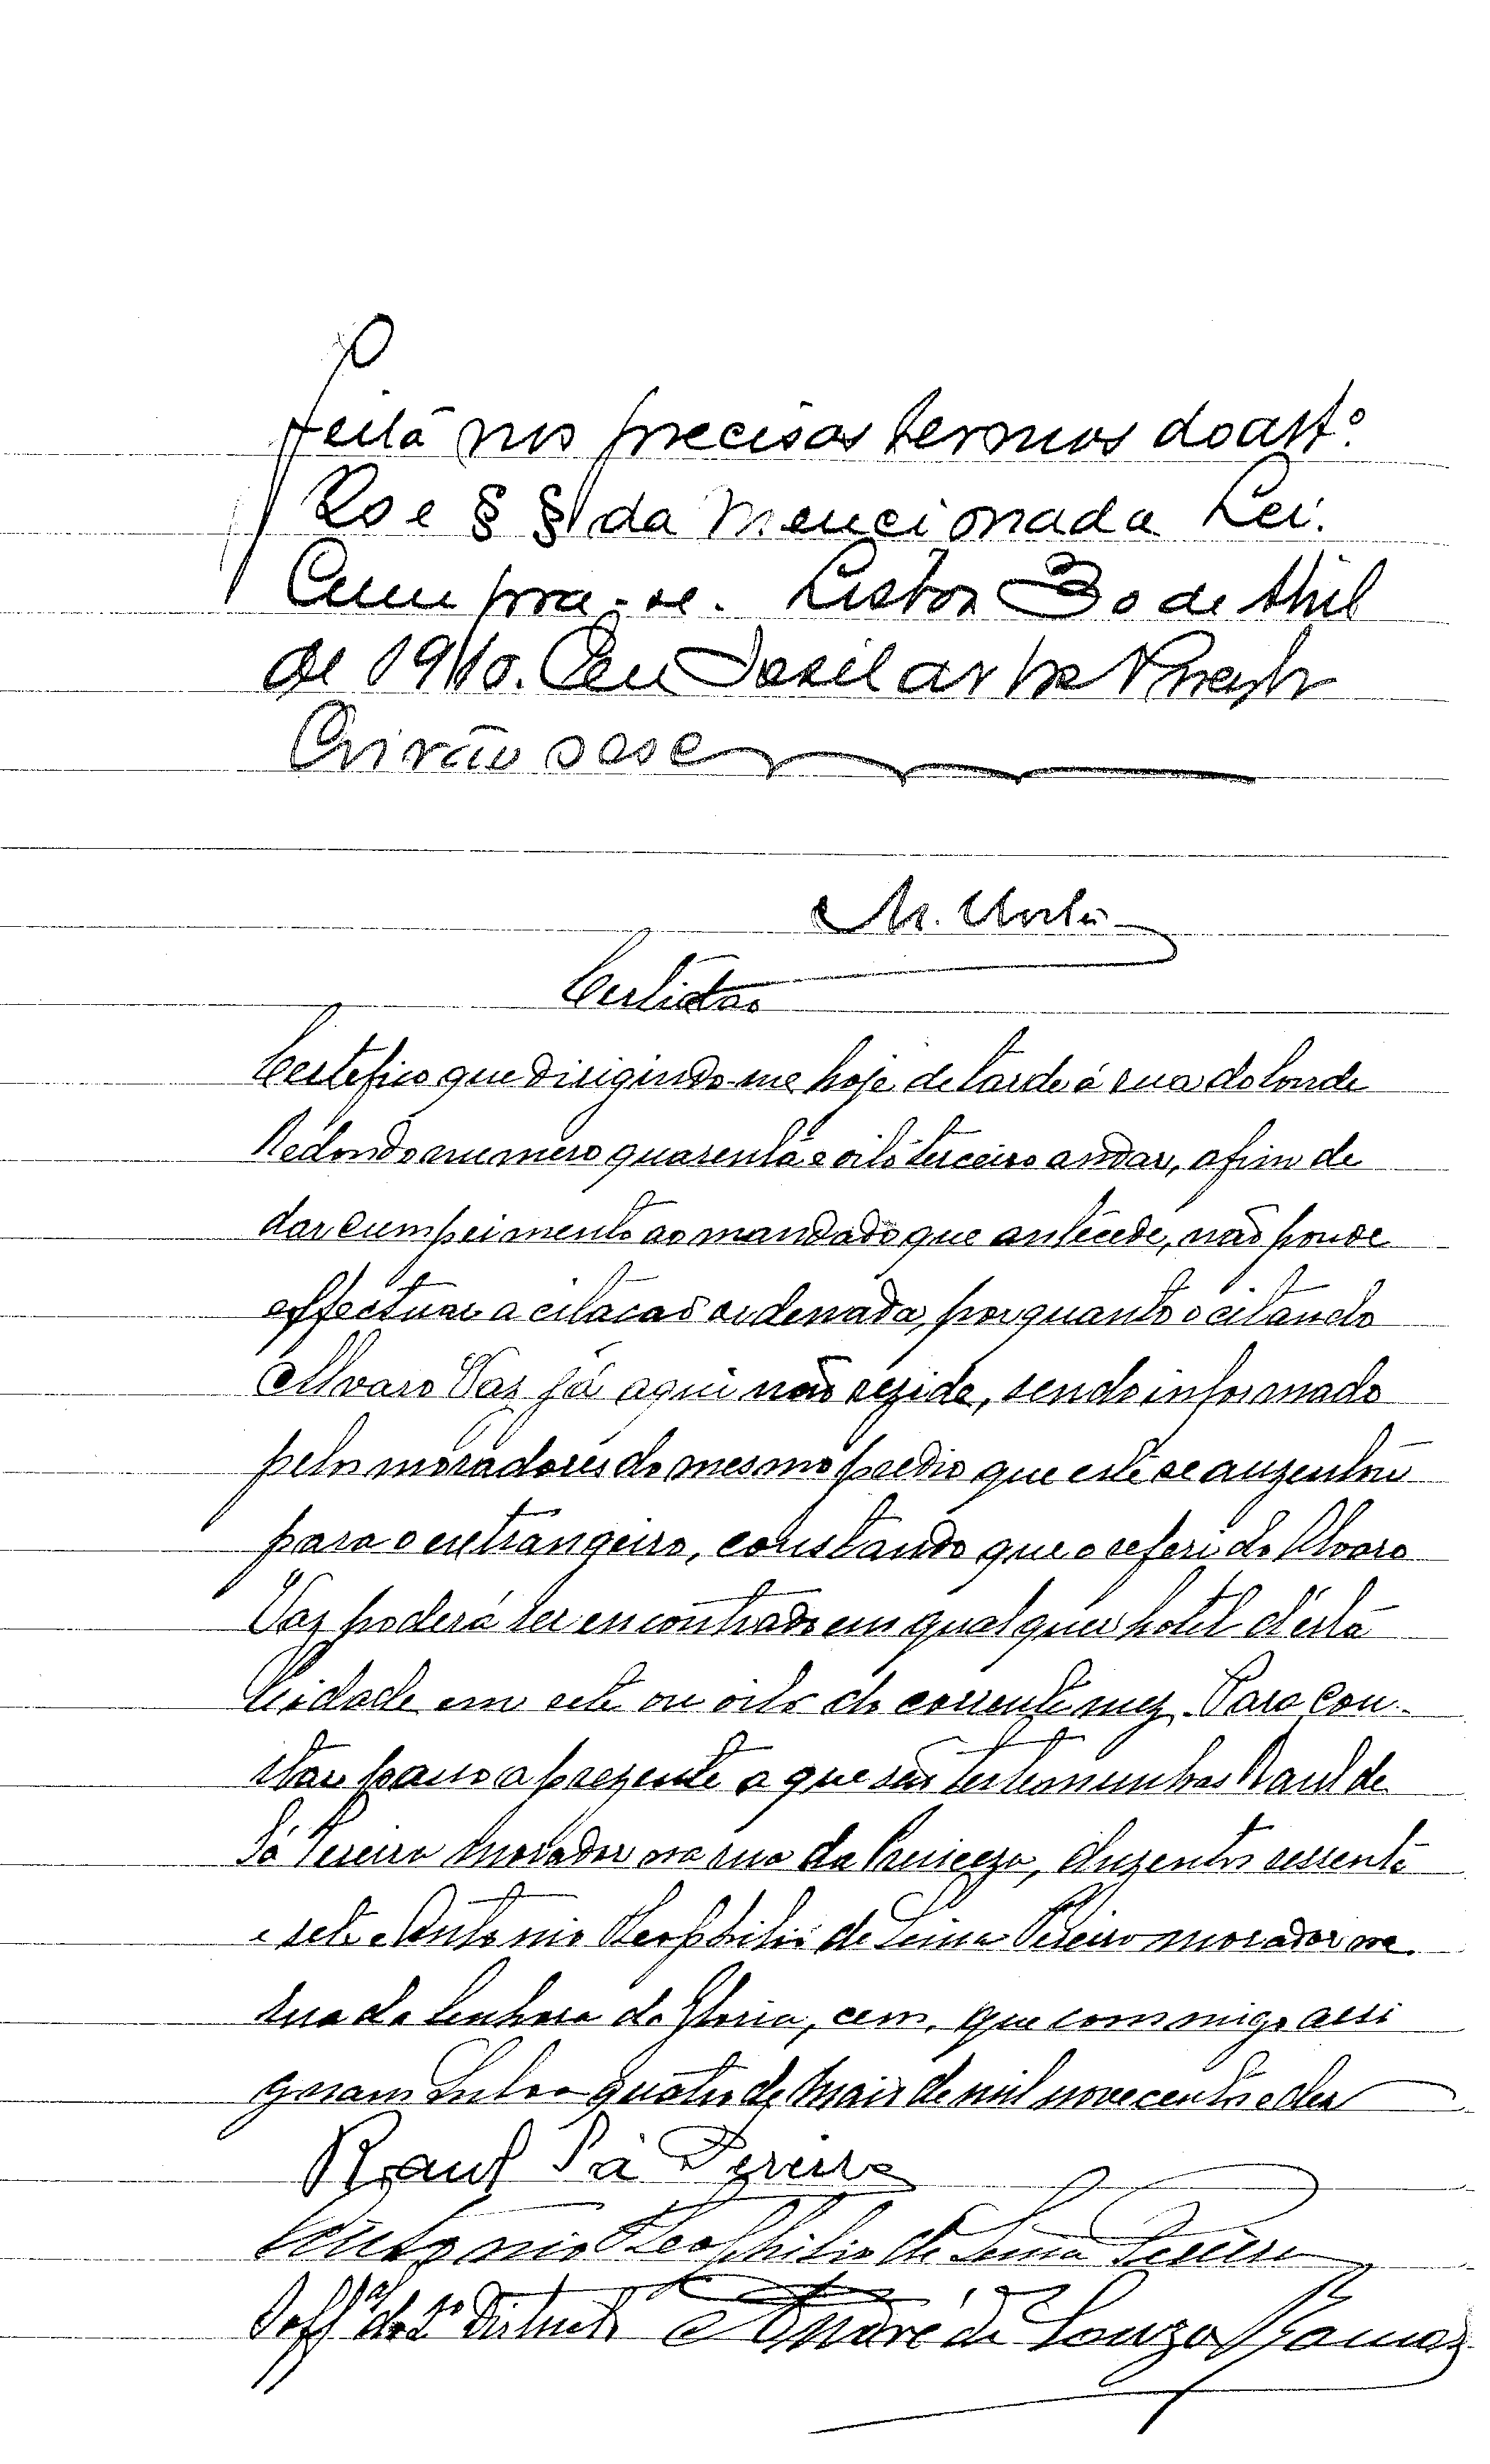 feita nos precisos termos do artº
20 e § § da mencionada Lei.
Cumpra-se. Lisboa 30 de Abril
de 1910. Eu José
Escrivão o
Certidão
Certefico que dirigindo-me hoje de tarde á rua do Conde
Redondo numero quarenta e oito terceiro andar, afim de
dar cumprimento ao mandado que antecede, não poude
effectuar a citacão ordenada, porquanto o citando
Alvaro Vaz já aqui não rezide, sendo informado
pelos moradores do mesmo predio que este se auzentou
para o extrangeiro, constando que o referido Alvaro
Vaz poderá ser encontrado em qualquer hotel d'esta
Cidade em sete ou oito do corrente mez. Para con-
star passo a prezente a que são testemunhas Raul de
Sá Pereira morador na rua da Princeza, duzentos sessenta
e sete e Antonio Theophilo de Lima Pereira morador na
rua da Senhora da Gloria, cem, que commigo assi
gnam Lisboa quatro de Maio de mil novecentos e dez
Raul Sá Pereira
Antonio Theophilio de Lima Pereira
O off al do 2º Districto André de Souza Ramos